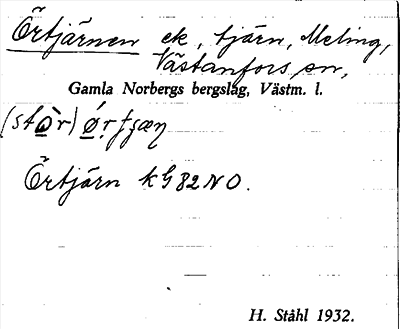 Örtjärnen ek, tjärn, Meling,
Västanfors sn,
Gamla Norbergs bergslag, Västm. l.
(stὼr)
Örtjärn kG82NO.
H. Ståhl 1932.